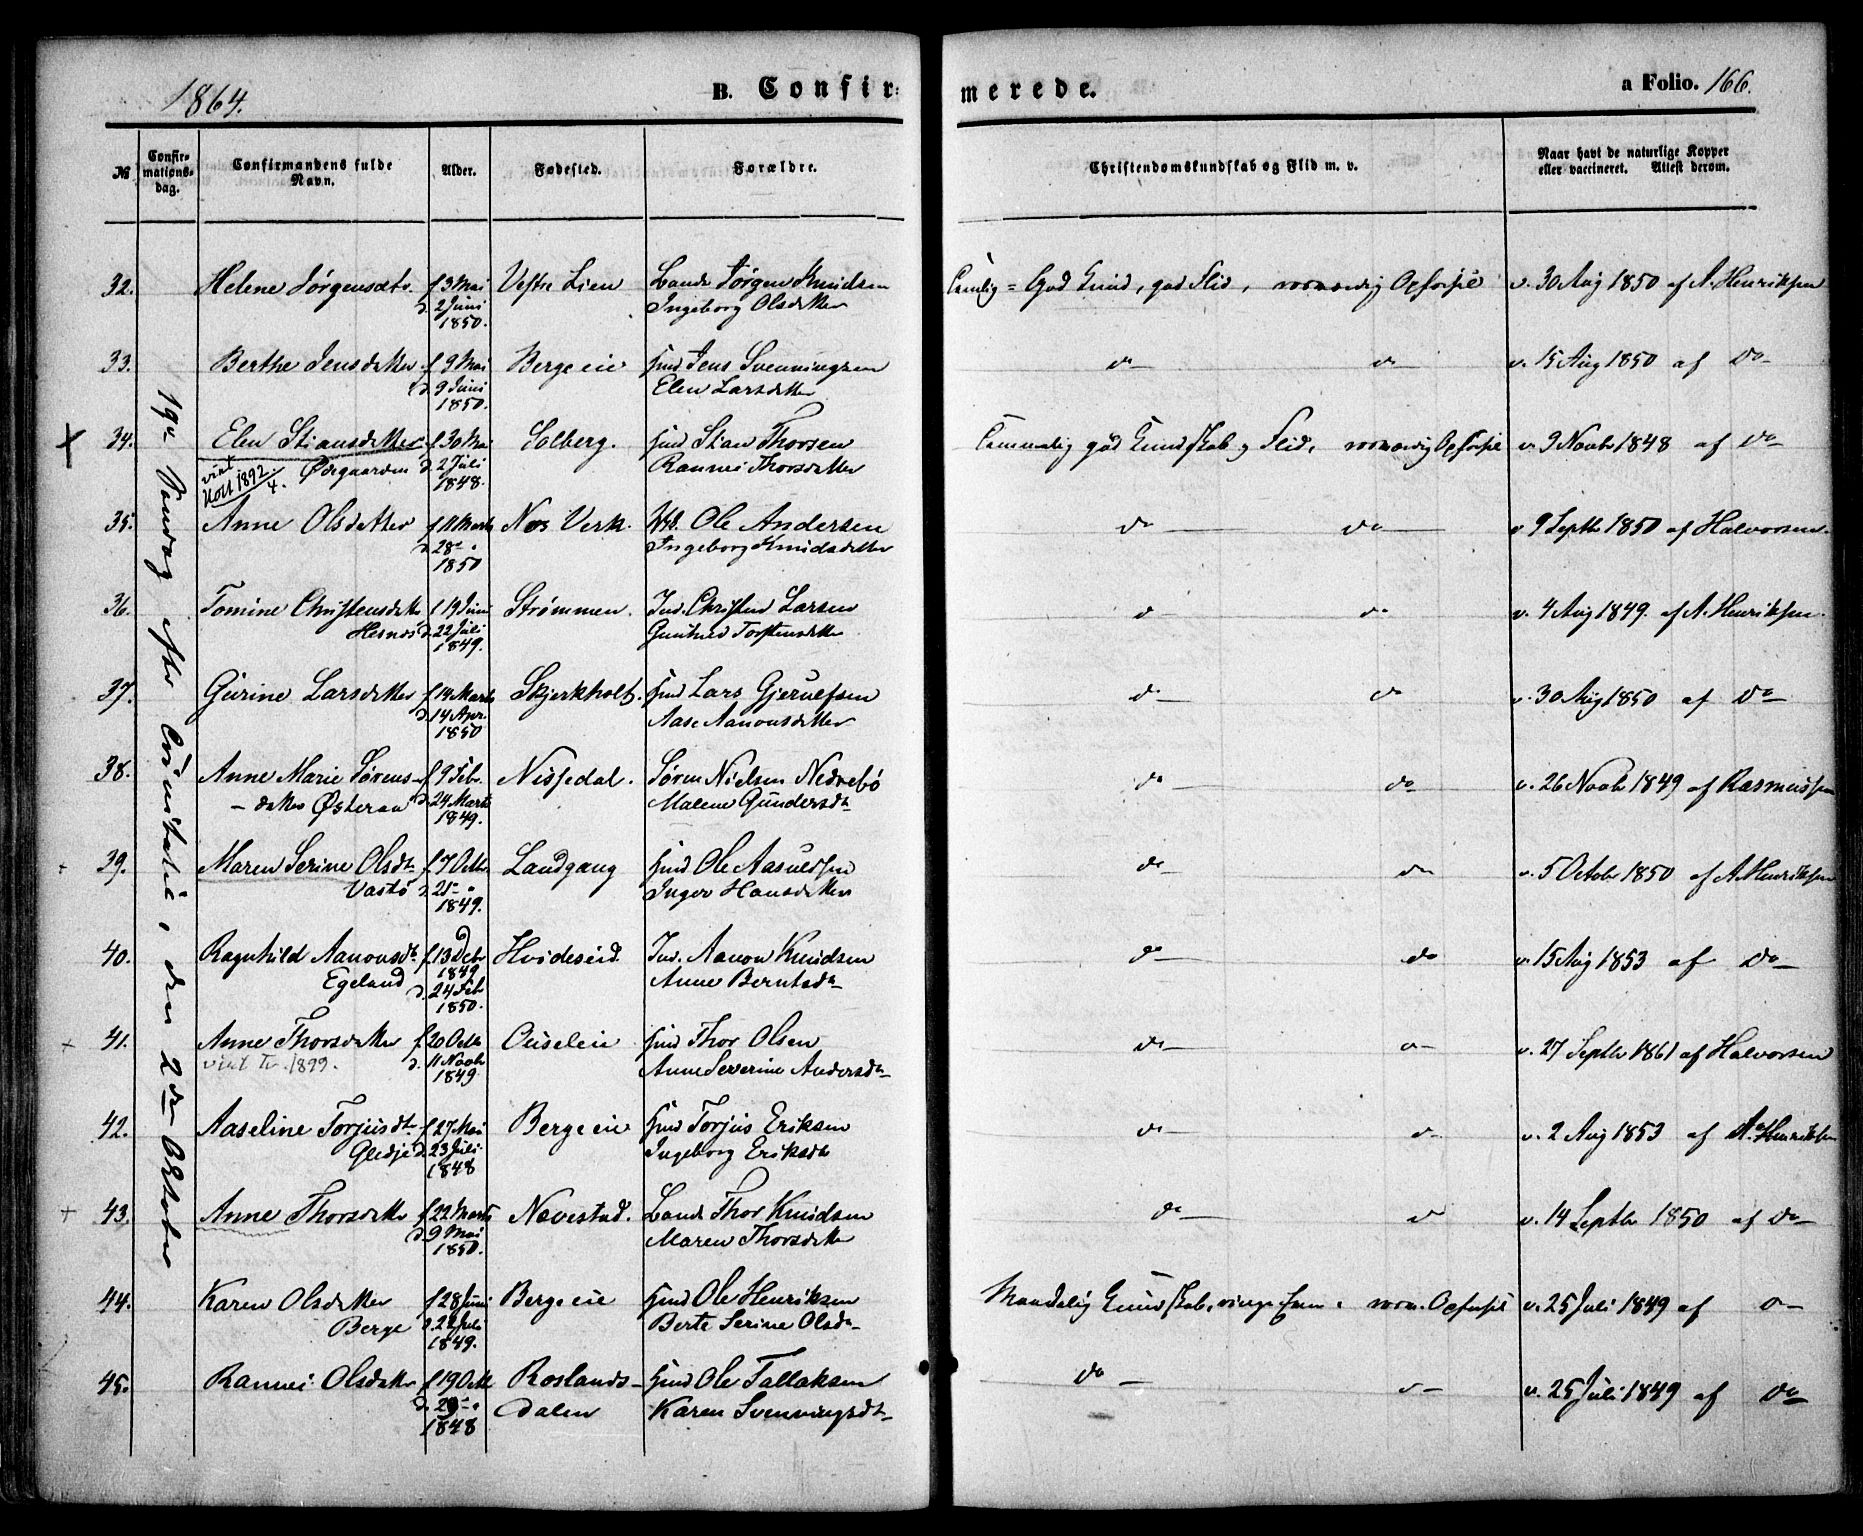 1864.
B. Confir-
merede.
a Folio. 166.
№
Confir-
mations-
dag.
Confirmandens fulde
Navn.
Alder.
Fødested.
Forældre.
Christendomskundskab og Flid m. v.
Naar havt de naturlige Kopper
eller vaccineret. Attest derom.
19de Søndag efter Trinitatis, den 2den Oktober
32. Helene Jørgensdtr f. 3 Mai Vestre Lien Gaardb. Jørgen Knudsen Temlig God Kund, god Flid, sømmelig Opførsel v. 30 Aug 1850 af A. Henriksen
d. 2 Juni Ingeborg Olsdatter
1850.
33. Berthe Jensdatter f. 9 Mai Berge eie Hmd Jens Svenningsen do do v. 15 Aug 1850 af Do
d. 9 Juni Elen Larsdatter
1850.
34. Elen Stiansdatter f. 30 Mai Solberg. Hmd Stian Thorsen Temmelig god Kundskab og Flid, Opførsel v. 9 Novbr 1848 af Do
viet Holt 1892 4. Ødegaarden d. 2 Juli Rannei Thorsdatter
1848.
35. Anne Olsdatter f. 11 Marts Nes Verk. Ole Andersen do do v. 9 Septbr 1850 af Halvorsen.
d. 28 " Ingeborg Knudsdatter
1850
36. Tomine Christensdatter f. 19 Juni Strømmen. Ind. Christen Larsen do do v. 4 Aug 1849. af A. Henriksen.
Hesnes d. 22 Juli Gunhild Torstensdatter
1849.
37. Gurine Larsdatter f. 14 Marts Skjerkholt. Hmd Lars Gjerulfsen do do v. 30 Aug 1850 af Do
d. 14 Apr. Aase Aanonsdatter
1850
38. Anne Marie Sørens- f. 9 Febr. Nissedal. Søren Nielsen Nedrebø do do v. 26 Novbr 1849 af Rasmussen
datter Østeraa d. 24 Marts Malene Gundersdtr
1849.
39. Maren Serine Olsdtr f. 7 Octbr. Landgang Hmd Ole Aasulfsen do do v. 5 Octobr 1850 af A. Henriksen
Vastø d. 21 " Inger Hansdatter
1849.
40. Ragnhild Aanonsdtr f. 13 Debr Hvideseid. Ind. Aanon Knudsen do do v. 15 Aug 1853 af Do
1849
Egeland d. 24 Feb Anne Berntsdtr
1850.
41. Anne Thorsdatter f. 20 Octbr Ouseleie Hmd Thor Olsen do do v. 27 Septbr 1861 af Halvorsen
viet Tv. 1899. d. 11 Novbr Anne Severine Andersdtr
1849
42. Aaseline Torjusdtr f. 27 Mai Berge eie Hmd Torjus Eriksen do do v. 2 Aug 1853 af A. Henriksen
Gledje d. 23 Juli Ingeborg Eriksdtr
1848
43. Anne Thorsdatter f. 22 Marts Navestad. Gaardb. Thor Knudsen do do v. 14 Septbr 1850 af Do
d. 9 Mai Maren Thorsdatter
1850.
44. Karen Olsdatter f. 28 Juni Berge eie Hmd Ole Henriksen Maadelig Kundskab, ringe Evne, Opførsel v. 25 Juli 1849 af Do
Berge d. 22 Juli Berte Serine Olsdtr
1849.
45. Rannei Olsdatter f. 19 Oct Roslands- Hmd Ole Tallaksen do do v. 25 Juli 1849 af Do
d. 29 " dalen Karen Svenningsdtr
1848